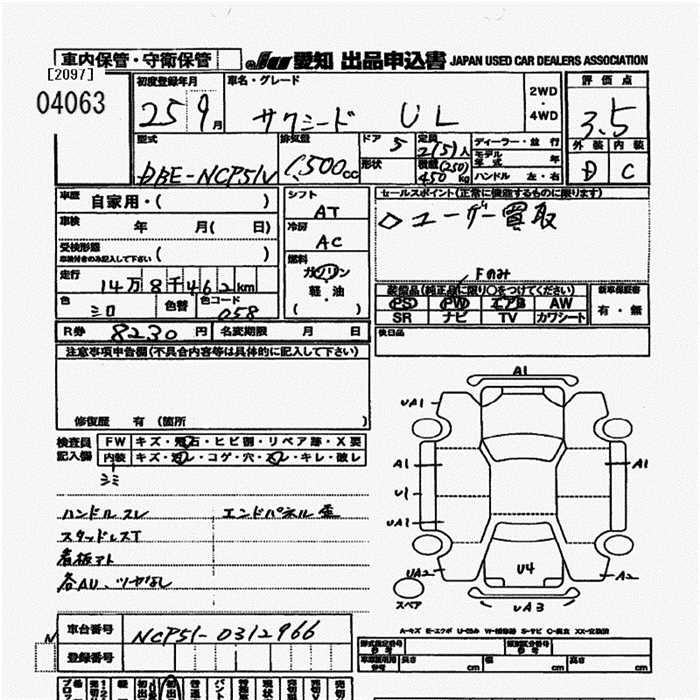 車内保管・守衛保管
JU 愛知 出品申込書 JAPAN USED CAR DEALERS ASSOCIATION
[2097]
04063
初度登録年月 25 9 月
車名・グレード サクシード UL
2WD・4WD
評価点 3.5
外装 D 内装 C
型式 DBE-NCP51V
排気量 1,500cc
ドア 5
形状
定員 2(5)人
積載 (250) 450 kg
ディーラー・並行
モデル年式 年
ハンドル 左・右
車歴 自家用・( )
車検 年 月( 日)
受検形態 ( )
車検付きのみ記入して下さい
走行 14万8千462km
色 シロ 色替 色コード 058
シフト AT
冷房 AC
燃料 ガソリン
軽・油
( )
セールスポイント(正常に機能するものに限ります)
◇ユーザー買取
Fのみ
装備品(純正品に限り○をつけてください)
PS PW エアB AW
SR ナビ TV カワシート
新車保証書 有・無
R券 8230円 名変期限 月 日
後日品
注意事項申告欄(不具合内容等は具体的に記入して下さい)
修復歴 有(箇所 )
検査員記入欄
FW キズ・飛石・ヒビ割・リペア跡・X要
内装 キズ・汚レ・コゲ・穴・スレ・キレ・破レ
シミ
ハンドルスレ エンドパネル歪
スタッドレスT
看板アト
各AU、ツヤなし
A1
UA1
A1
A1
U1
UA1
UA2
U4
A2
UA3
スペア
A-キズ E-エクボ U-凹み W-補修跡 S-サビ C-腐食 XX-交換済
車台番号 NCP51-0312966
N
登録番号
型式指定番号 参考
類別区分番号 参考
車検証記載 参考 長さ cm 幅 cm 高さ cm